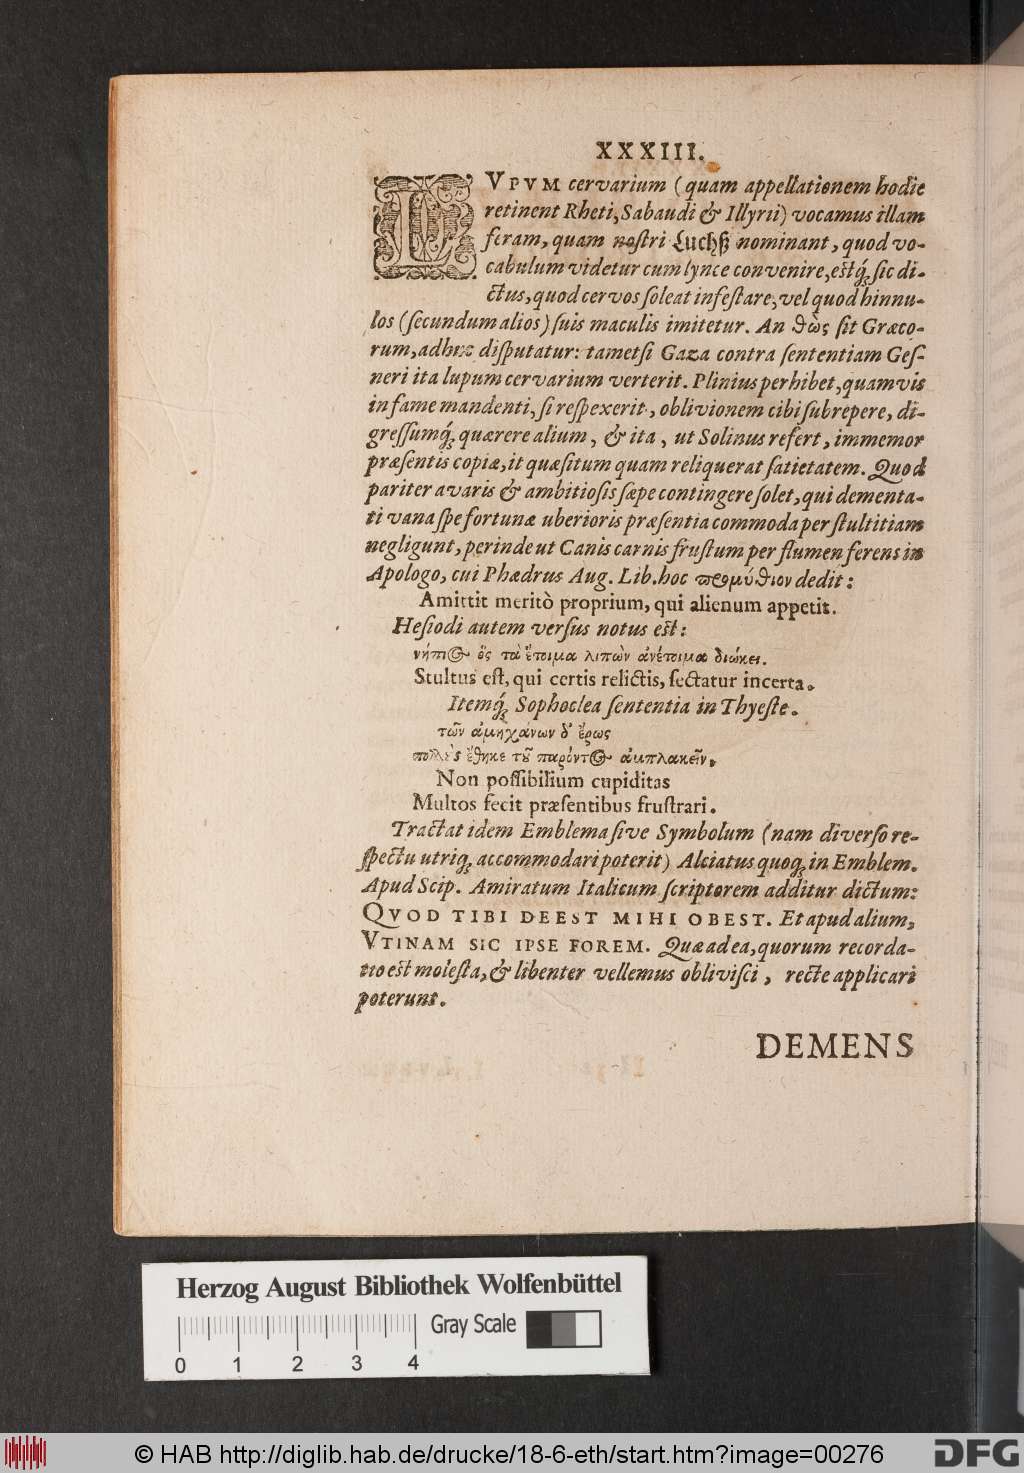 XXXIII.
LVPVM cervarium (quam appellationem hodie
retinent Rheti, Sabaudi & Illyrii) vocamus illam
feram, quam nostri Luchß nominant, quod vo-
cabulum videtur cum lynce convenire, estq́ꝫ sic di-
ctus, quod cervos soleat infestare, vel quod hinnu-
los (secundum alios) suis maculis imitetur. An θὼς sit Græco-
rum, adhuc disputatur: tametsi Gaza contra sententiam Ges-
neri ita lupum cervarium verterit. Plinius perhibet, quamvis
in fame mandenti, si respexerit, oblivionem cibi subrepere, di-
gressumq́ꝫ quærere alium, & ita, ut Solinus refert, immemor
præsentis copiæ, it quæsitum quam reliquerat satietatem. Quod
pariter avaris & ambitiosis sæpe contingere solet, qui dementa-
ti vana spe fortunæ uberioris præsentia commoda per stultitiam
negligunt, perinde ut Canis carnis frustum per flumen ferens in
Apologo, cui Phædrus Aug. Lib. hoc προμύθιον dedit:
Amittit meritò proprium, qui alienum appetit.
Hesiodi autem versus notus est:
νήπιος ὃς τὰ ἕτοιμα λιπὼν ἀνέτοιμα διώκει.
Stultus est, qui certis relictis, sectatur incerta.
Itemq́ꝫ Sophoclea sententia in Thyeste.
τῶν ἀμηχάνων δ' ἔρως
πολλὲς ἔθηκε τοῦ παρόντος ἀμπλακεῖν.
Non possibilium cupiditas
Multos fecit præsentibus frustrari.
Tractat idem Emblema sive Symbolum (nam diverso re-
spectu utriqꝫ accommodari poterit) Alciatus quoqꝫ in Emblem.
Apud Scip. Amiratum Italicum scriptorem additur dictum:
QVOD TIBI DEEST MIHI OBEST. Et apud alium,
VTINAM SIC IPSE FOREM. Quæ ad ea, quorum recorda-
tio est molesta, & libenter vellemus oblivisci, recte applicari
poterunt.
DEMENS
Herzog August Bibliothek Wolfenbüttel
Gray Scale
0 1 2 3 4
© HAB http://diglib.hab.de/drucke/18-6-eth/start.htm?image=00276
DFG